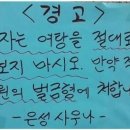 <경고>
자는 여탕을 절대로
보지 마시오. 만약
원의 벌금형에 처합니
- 은성 사우나 -